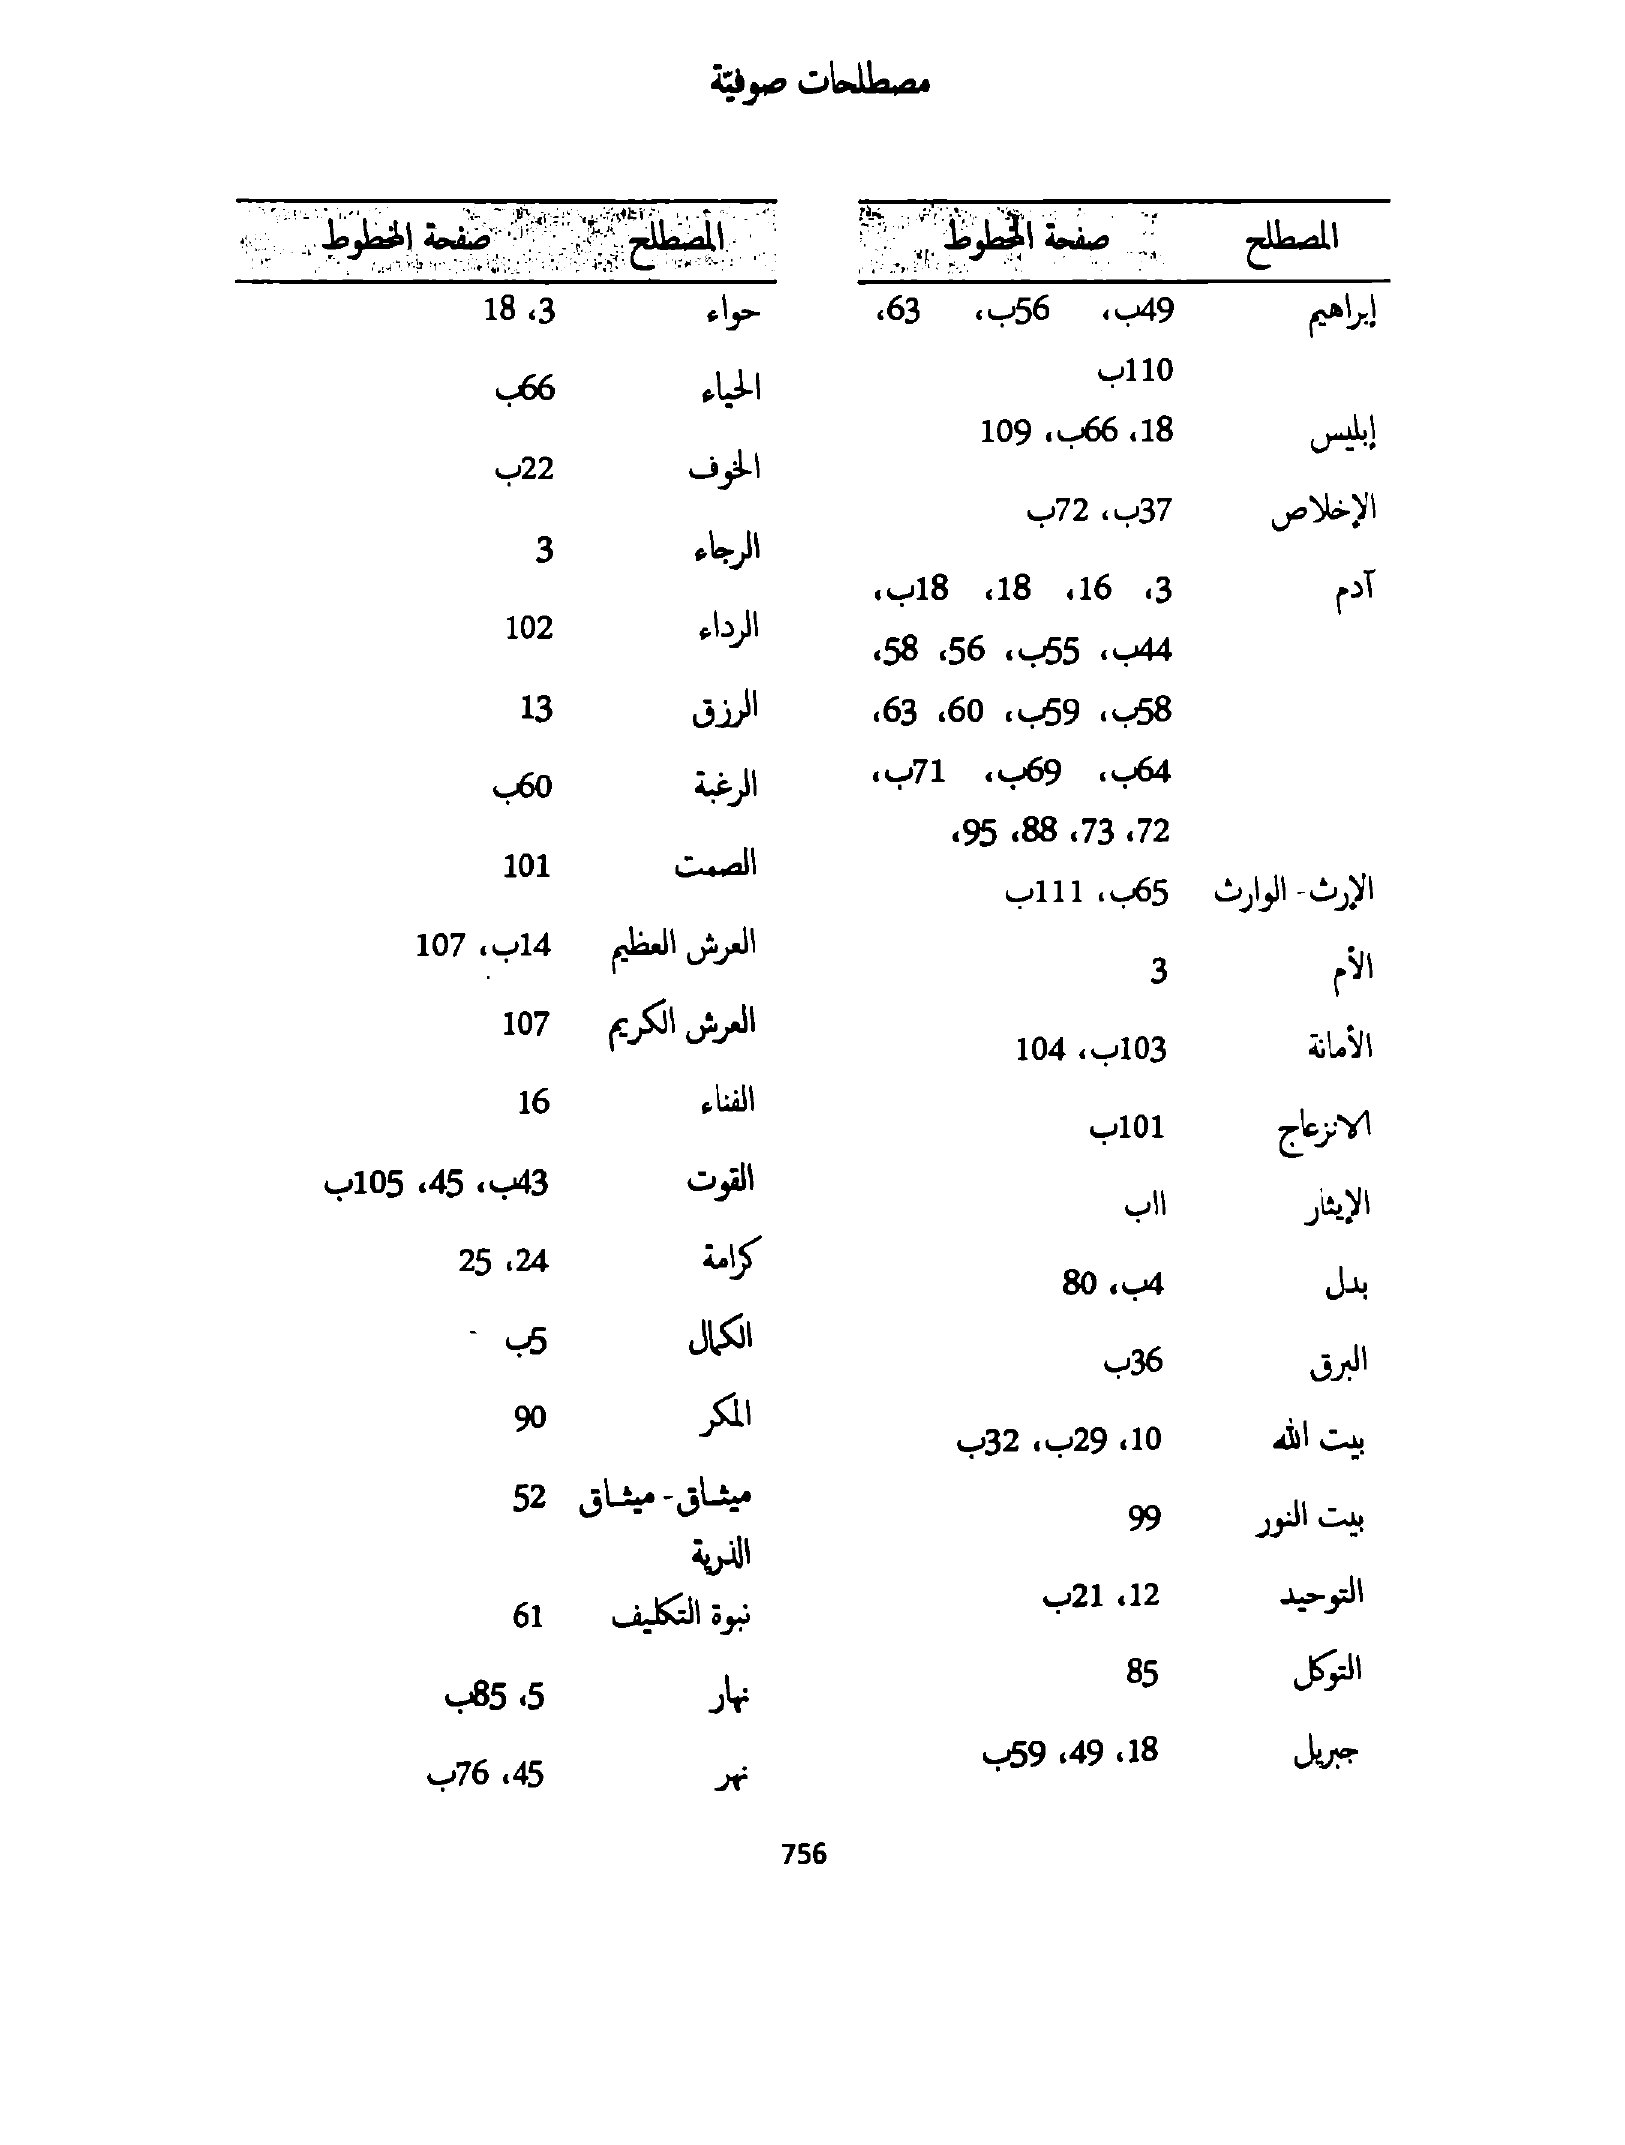 مصطلحات صوفيّة
المصطلح صفحة المخطوط
إبراهيم 49ب، 56ب، 63،
110ب
إبليس 18، 66ب، 109
الإخلاص 37ب، 72ب
آدم 3، 16، 18، 18ب،
44ب، 55ب، 56، 58،
58ب، 59ب، 60، 63،
64ب، 69ب، 71ب،
72، 73، 88، 95،
الإرث- الوارث 65ب، 111ب
الأم 3
الأمانة 103ب، 104
الانزعاج 101ب
الإيثار 11ب
بدل 4ب، 80
البرق 36ب
بيت الله 10، 29ب، 32ب
بيت النور 99
التوحيد 12، 21ب
التوكل 85
جبريل 18، 49، 59ب
المصطلح صفحة المخطوط
حواء 3، 18
الحياء 66ب
الخوف 22ب
الرجاء 3
الرداء 102
الرزق 13
الرغبة 60ب
الصمت 101
العرش العظيم 14ب، 107
العرش الكريم 107
الفناء 16
القوت 43ب، 45، 105ب
كرامة 24، 25
الكمال 5ب
المكر 90
ميثاق- ميثاق 52
الذرية
نبوة التكليف 61
نهار 5، 85ب
نهر 45، 76ب
756